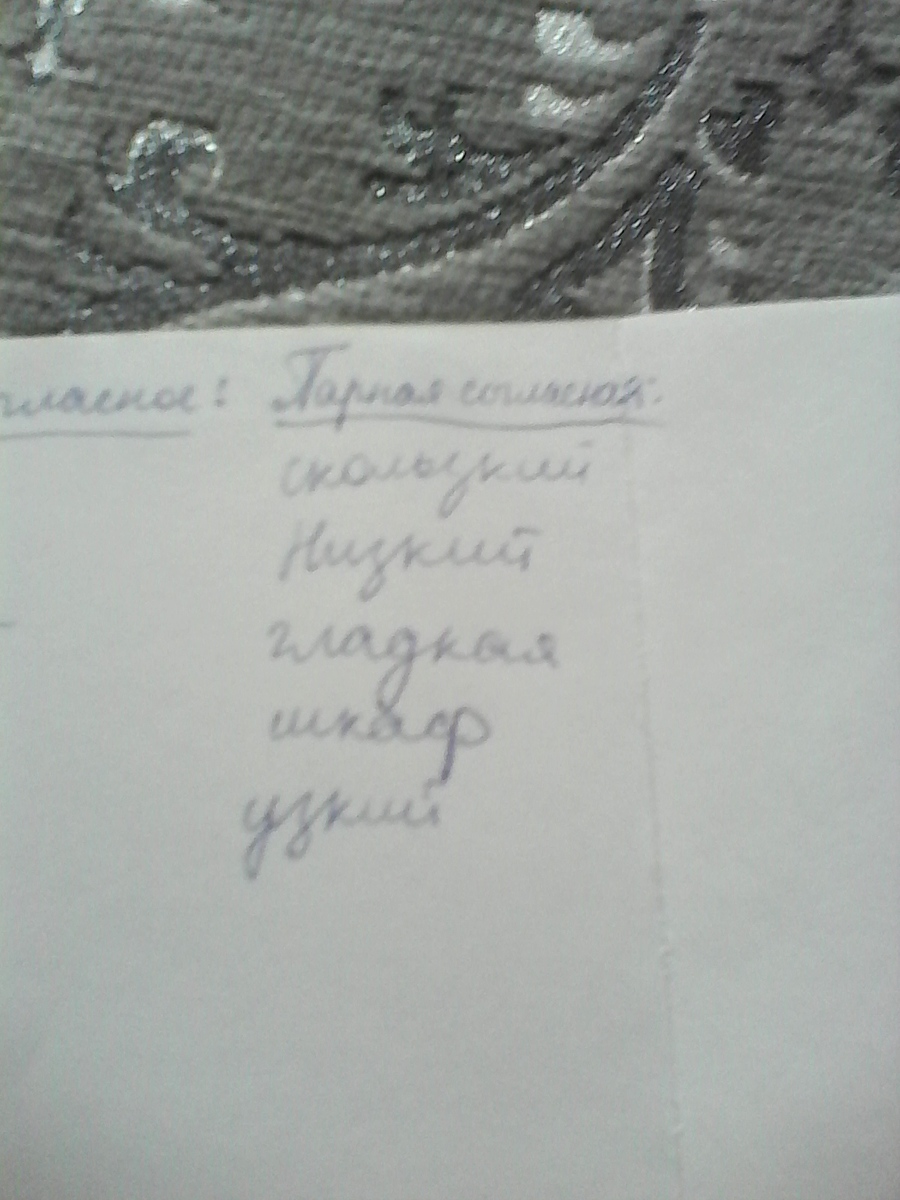 гласное: Парная согласной.
скользкий
Низкий
гладкая
шкаф
узкий